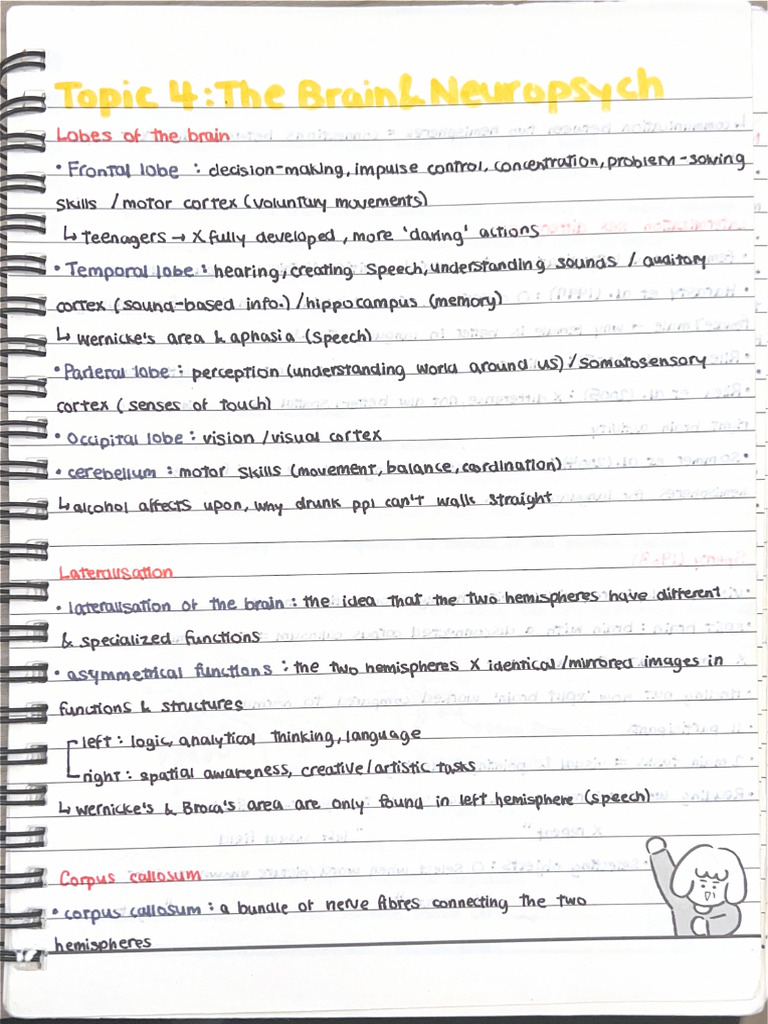 Topic 4: The Brain & Neuropsych
Lobes of the brain
• Frontal lobe : decision-making, impulse control, concentration, problem-solving
skills / motor cortex (voluntary movements)
↳ teenagers → X fully developed, more 'daring' actions
• Temporal lobe : hearing, creating speech, understanding sounds / auditory
cortex (sound-based info.) / hippocampus (memory)
↳ wernicke's area & aphasia (speech)
• Parieral lobe : perception (understanding world around us) / somatosensory
cortex ( senses of touch)
• Occipital lobe : vision / visual cortex
• cerebellum : motor skills (movement, balance, cordination)
↳ alcohol affects upon, why drunk ppl can't walk straight
Lateralisation
• lateralisation of the brain : the idea that the two hemispheres have different
& specialized functions
• asymmetrical functions : the two hemispheres X identical / mirrored images in
functions & structures
left : logic, analytical thinking, language
right : spatial awareness, creative / artistic tasks
↳ wernicke's & Broca's area are only found in left hemisphere (speech)
Corpus callosum
• corpus callosum : a bundle of nerve fibres connecting the two
hemispheres